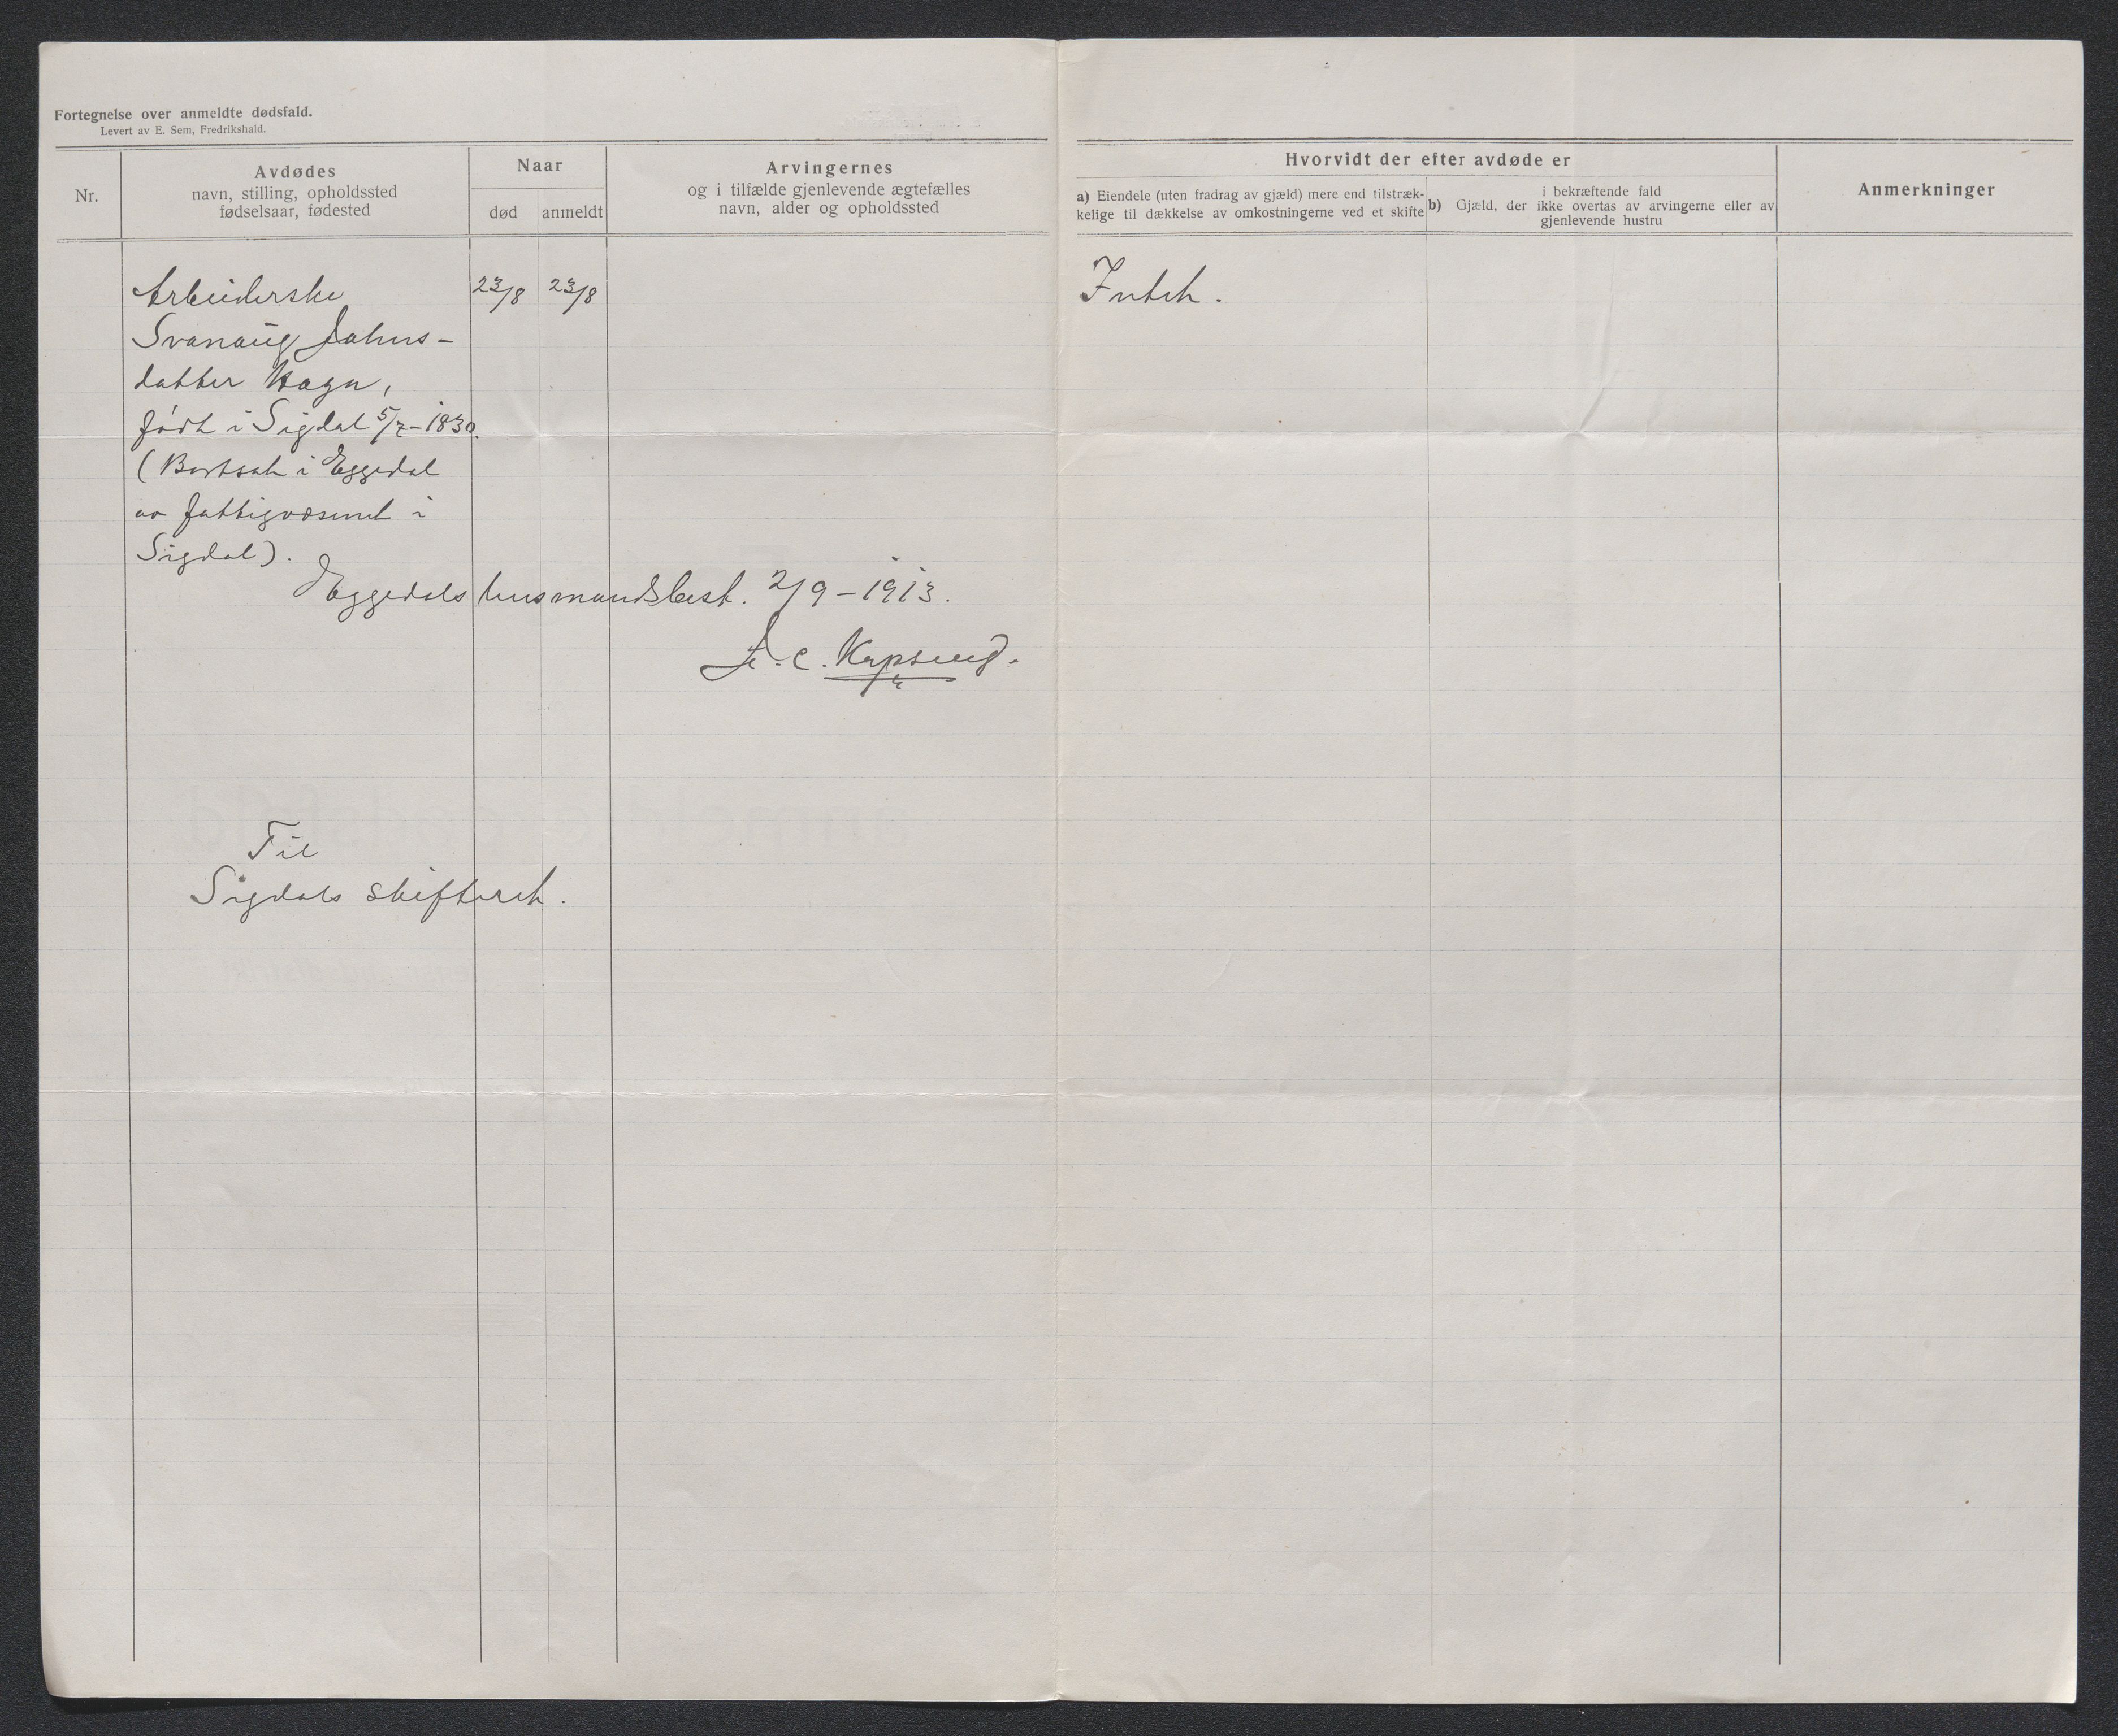 Fortegnelse over anmeldte dødsfald.
Levert av E. Sem, Fredrikshald.
Nr.
Avdødes
navn, stilling, opholdssted
fødselsaar, fødested
Naar
død
anmeldt
Arvingernes
og i tilfælde gjenlevende ægtefælles
navn, alder og opholdssted
Hvorvidt der efter avdøde er
a) Eiendele (uten fradrag av gjæld) mere end tilstræk-
kelige til dækkelse av omkostningerne ved et skifte
i bekræftende fald
b) Gjæld, der ikke overtas av arvingerne eller av
gjenlevende hustru
Anmerkninger
Arbeiderske 23/8 23/8 Intet.
Svanaug Johns-
datter Haga,
født i Sigdal 5/7-1830.
(Bortsat i Eggedal
av fattigvæsenet i
Sigdal).
Eggedals lensmandsbest. 2/9-1913.
A. C. Kopseng.
Til
Sigdals skifteret.